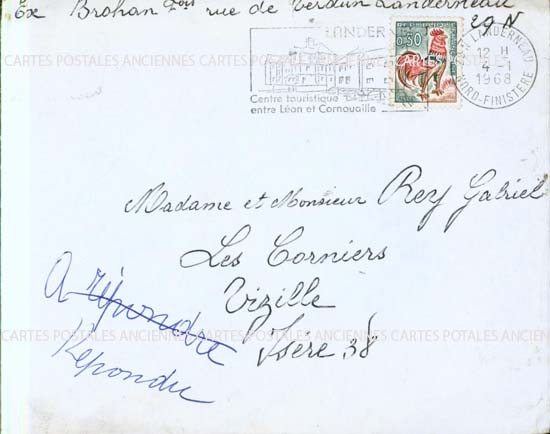 Ex Brohan rue de Verdun Landerneau
29 N
LANDER
0,30
LANDERNEAU
12 H
4 - 1
1968
NORD-FINISTERE
Centre touristique
entre Léon et Cornouaille
CARTES POSTALES ANCIENNES CARTES POSTALES ANCIENNES CARTES POSTALES ANCIENNES
Madame et Monsieur Rey Gabriel
Les Corniers
Vizille
Isère 38
A répondre
Répondu
CARTES POSTALES ANCIENNES CARTES POSTALES ANCIENNES CARTES POSTALES ANCIENNES